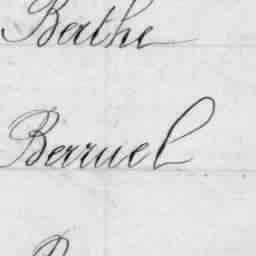 Berthe
Berruel